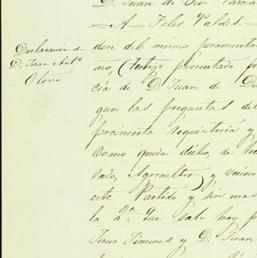 D. Juan de Dios Garcia
A. Felis Valdes.
Declaracion de
D. Juan Anto
Otono
dose del mismo juramento
no, (Testigo precentado po
cia de D. Juan de D
gun las preguntas de
precincerta requisitoria y
Como queda dicho, de
sado, Agricultor y vecino
este Partido y sin mas
la 2a. Que sabe hay p
Jimenes y D. Juan